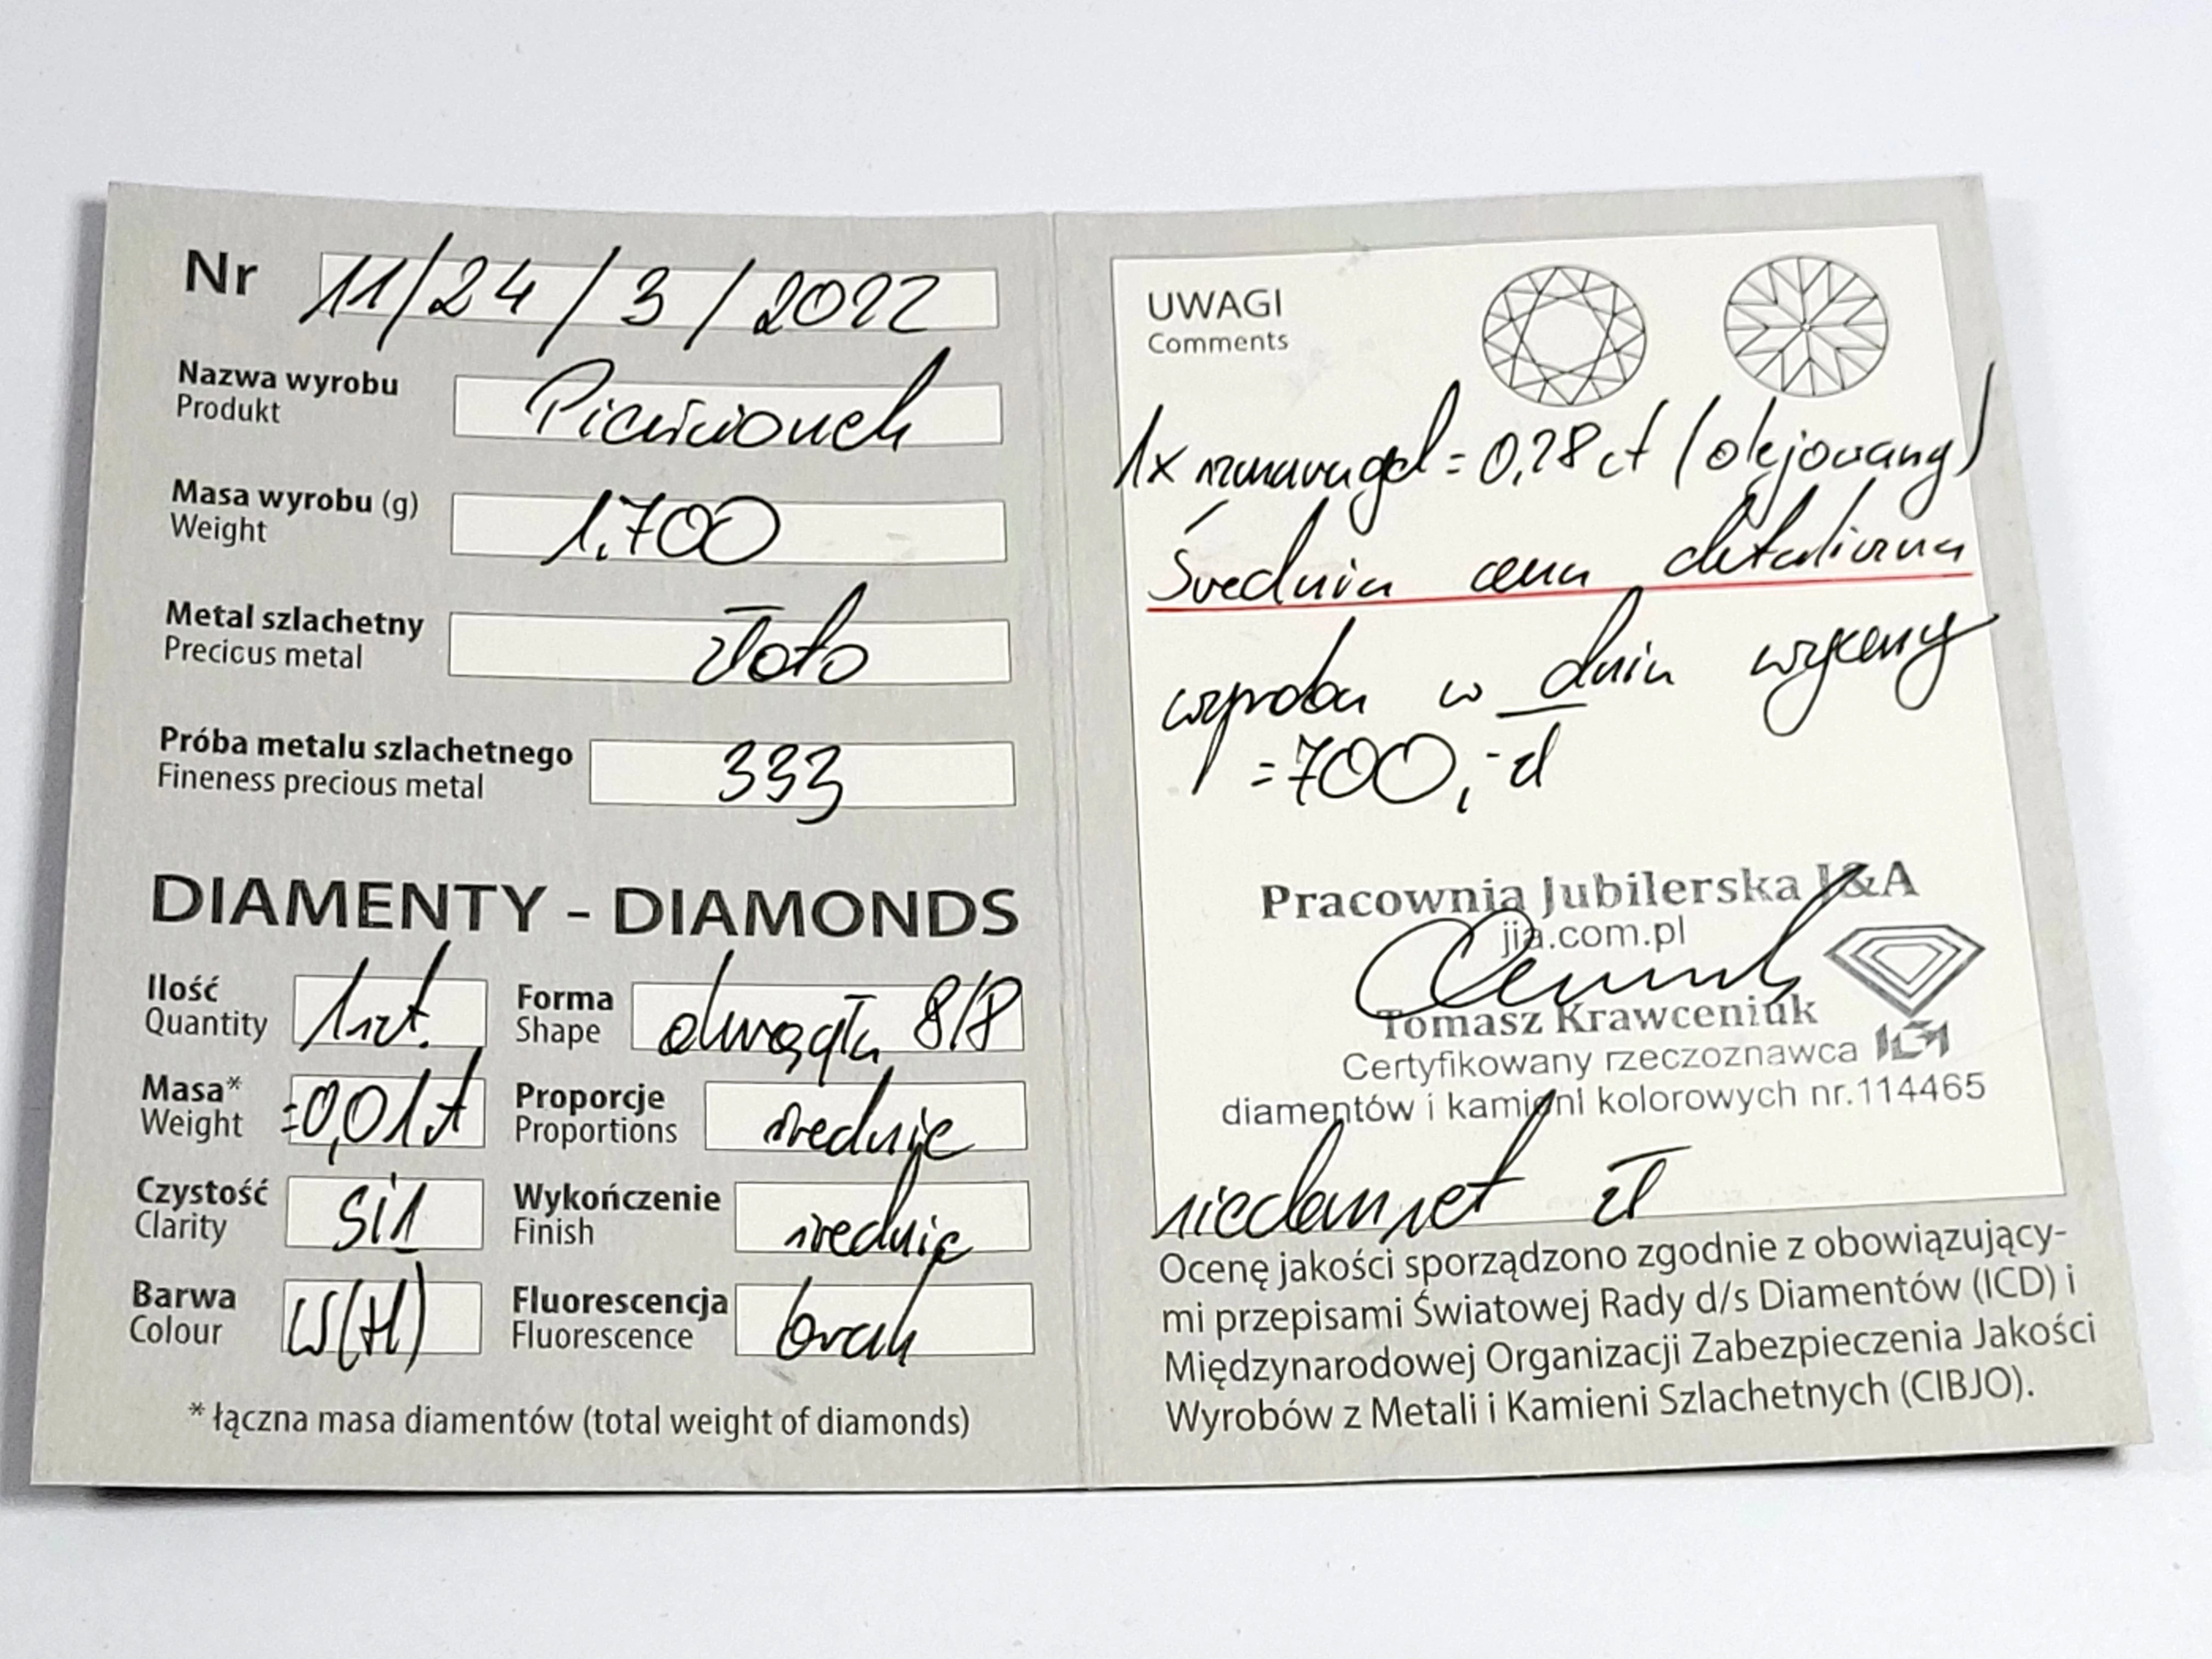 Nr 11/24/3/2022
Nazwa wyrobu
Produkt
Pierścionek
Masa wyrobu (g)
Weight
1.700
Metal szlachetny
Precious metal
złoto
Próba metalu szlachetnego
Fineness precious metal
333
DIAMENTY - DIAMONDS
Ilość
Quantity
1szt.
Forma
Shape
okrągła 8/8
Masa*
Weight
=0,01ct
Proporcje
Proportions
średnie
Czystość
Clarity
Si1
Wykończenie
Finish
średnie
Barwa
Colour
W(H)
Fluorescencja
Fluorescence
brak
* łączna masa diamentów (total weight of diamonds)
UWAGI
Comments
1x szmaragd = 0,28 ct (olejowany)
Średnia cena detaliczna
wyrobu w dniu wyceny
=700,-zł
Pracownia Jubilerska J&A
jia.com.pl
Tomasz Krawceniuk
Certyfikowany rzeczoznawca
diamentów i kamieni kolorowych nr.114465
siedemset zł
Ocenę jakości sporządzono zgodnie z obowiązujący-
mi przepisami Światowej Rady d/s Diamentów (ICD) i
Międzynarodowej Organizacji Zabezpieczenia Jakości
Wyrobów z Metali i Kamieni Szlachetnych (CIBJO).